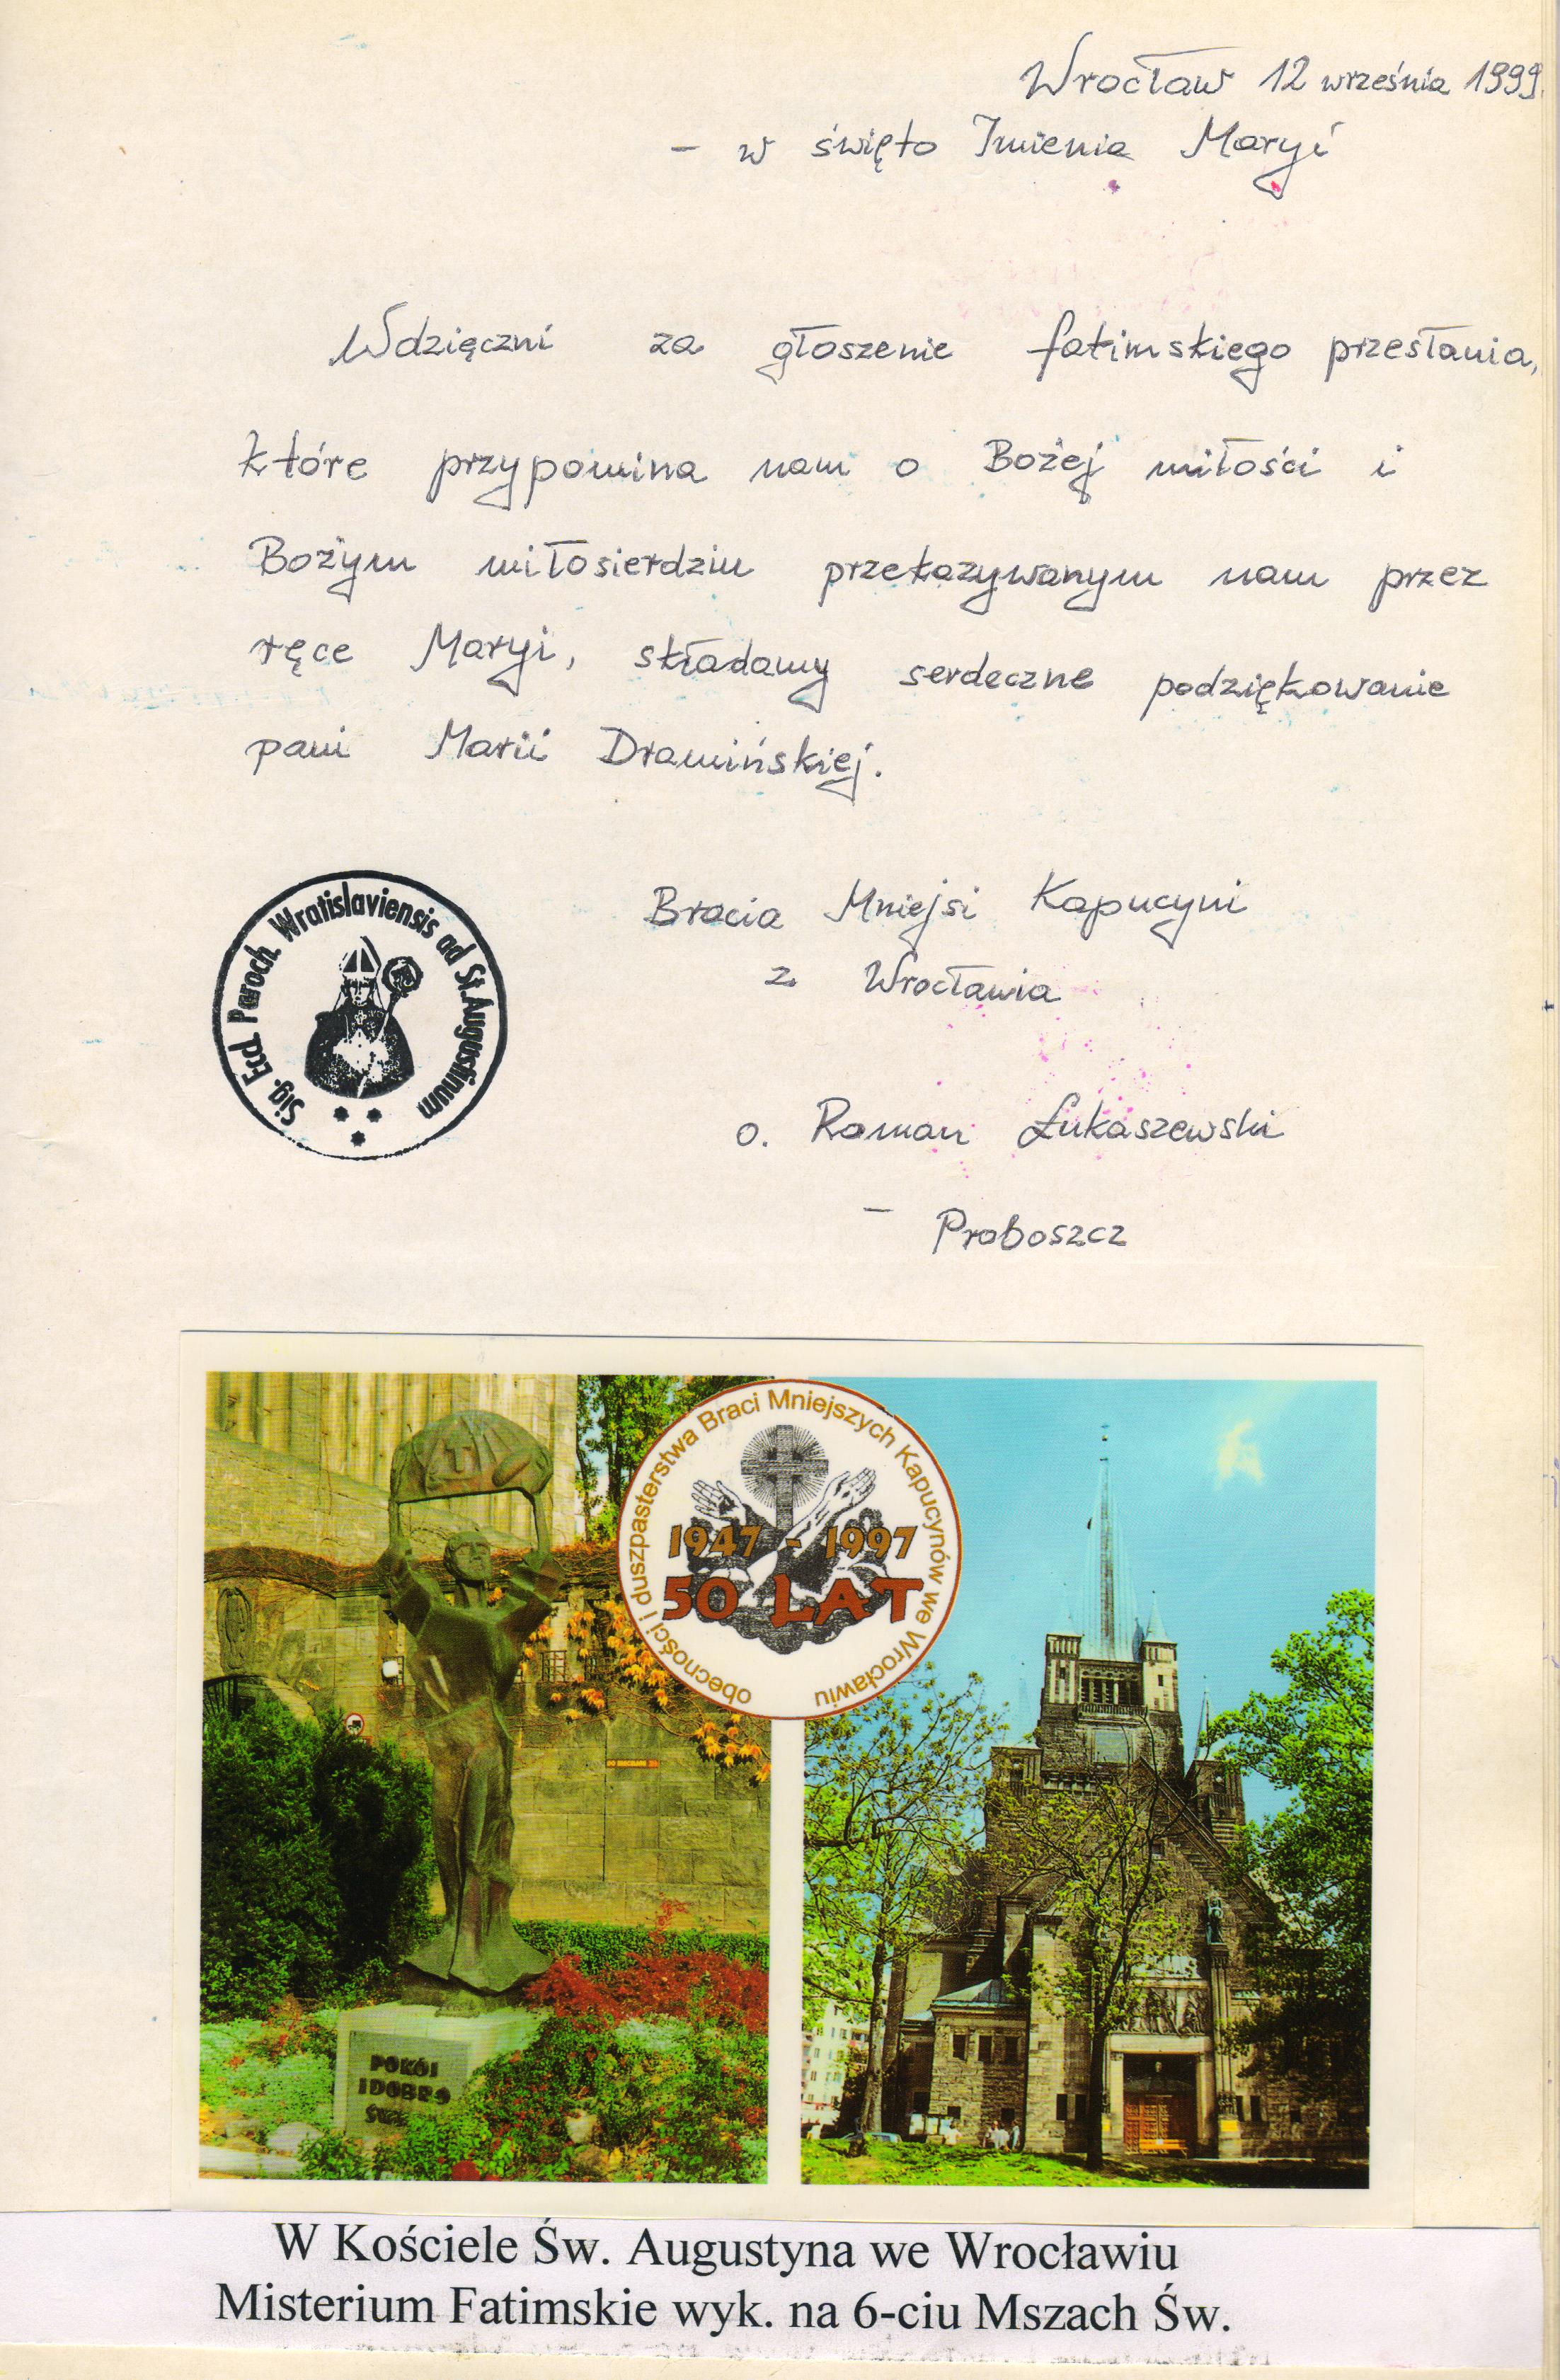 Wrocław 12 września 1999.
- w święto Imienia Maryi
Wdzięczni za głoszenie fatimskiego przesłania,
które przypomina nam o Bożej miłości i
Bożym miłosierdziu przekazywanym nam przez
ręce Maryi, składamy serdeczne podziękowanie
pani Marii Dramińskiej.
Sig. Eccl. Paroch. Wratislaviensis ad St. Augustinum
Bracia Mniejsi Kapucyni
z Wrocławia
o. Roman Łukaszewski
- Proboszcz
obecności i duszpasterstwa Braci Mniejszych Kapucynów we Wrocławiu
1947 - 1997
50 LAT
POKÓJ
I DOBRO
W Kościele Św. Augustyna we Wrocławiu
Misterium Fatimskie wyk. na 6-ciu Mszach Św.